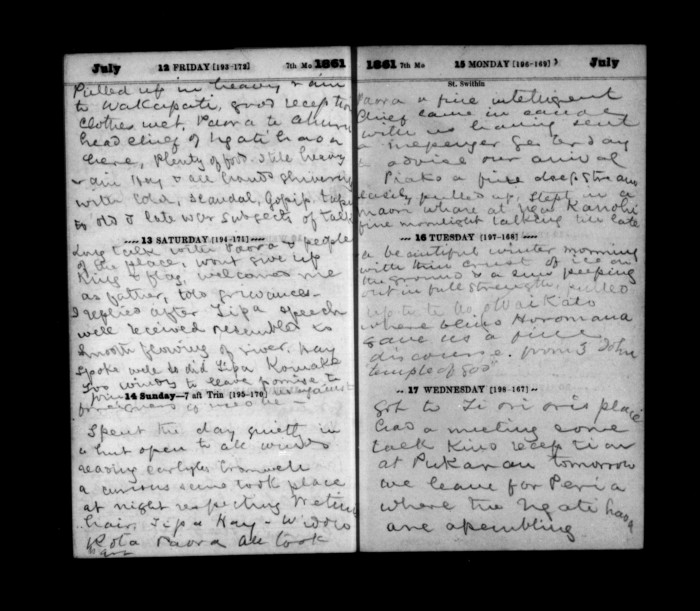 July 12 FRIDAY [193-172] 7th Mo 1861
Pulled up in heavy rain
to Wakapati, good reception
clothes wet. Paora te
head chief of Ngati haoa
here, Plenty of food. Still heavy
rain Hay & all hands shivering
with cold, scandal, Gossip,
old & late war subjects of talk
13 SATURDAY [194-171]
Long talk with Paora & people
of the place, wont give up
King & flag, welcomes me
as father, told grievances
I replies after Tipa speech
well received resembled to
smooth flowing of river. Hay
spoke well so did Tipa
to leave promise to
14 Sunday—7 aft Trin [195-170]
Spent the day quietly in
a hut open to all winds
reading Carlyles Cromwell
a curious scene took place
at night respecting
hair, Tipa Hay - Widow
Kota Paora all took
1861 7th Mo 15 MONDAY [196-169] July
St. Swithin
Paora a fine intelligent
Chief came in canoe
with us having sent
a messenger yesterday
to advise our arrival
Piako a fine deep stream
easily pulled up, slept in a
maori whare at
fine moonlight talking till late
16 TUESDAY [197-168]
a beautiful winter morning
with thin crust of ice on
the ground & a sun peeping
out in full strength, pulled
up to te
where blind Horomana
gave us a fine
discourse. from 3 John
"temple of God"
17 WEDNESDAY [198-167]
Got to place
had a meeting some
talk kind reception
at Pukanau tomorrow
we leave for Peria
where the Ngati haoa
are assembling